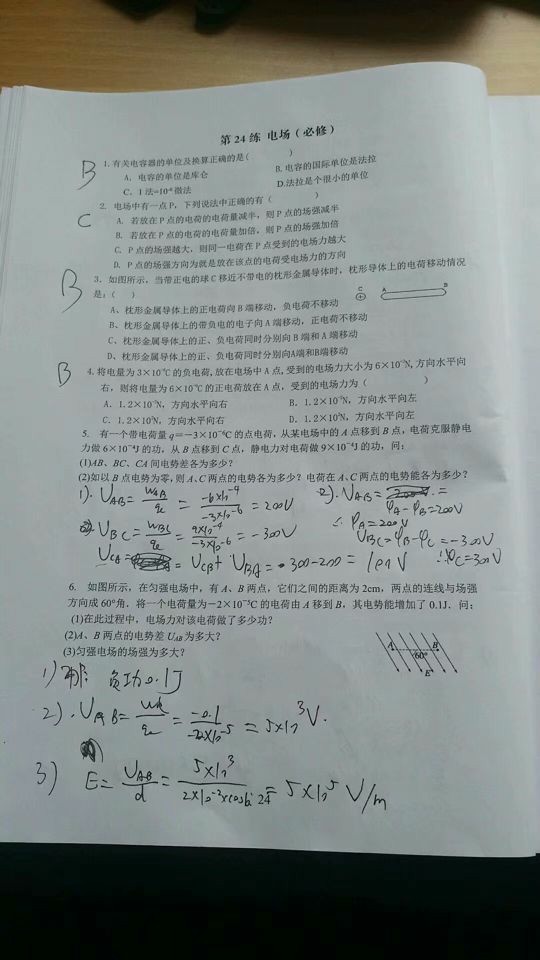 第24练 电场（必修）
B
1.有关电容器的单位及换算正确的是（ ）
A．电容的单位是库仑 B.电容的国际单位是法拉
C．1法=10⁻⁶微法 D.法拉是个很小的单位
C
2．电场中有一点P，下列说法中正确的有（ ）
A．若放在P点的电荷的电荷量减半，则P点的场强减半
B．若放在P点的电荷的电荷量加倍，则P点的场强加倍
C．P点的场强越大，则同一电荷在P点受到的电场力越大
D．P点的场强方向为就是放在该点的电荷受电场力的方向
B
3．如图所示，当带正电的球C移近不带电的枕形金属导体时，枕形导体上的电荷移动情况
是：（ ）
C A B
A、枕形金属导体上的正电荷向B端移动，负电荷不移动
B、枕形金属导体上的带负电的电子向A端移动，正电荷不移动
C、枕形金属导体上的正、负电荷同时分别向B端和A端移动
D、枕形金属导体上的正、负电荷同时分别向A端和B端移动
B
右，则将电量为6×10⁻⁸C的正电荷放在A点，受到的电场力为（ ）
方向水平向右 B．1.2×10⁻²N，方向水平向左
方向水平向右 方向水平向左
5． 有一个带电荷量q＝－3×10⁻⁶C的点电荷，从某电场中的A点移到B点，电荷克服静电
力做6×10⁻⁴J的功，从B点移到C点，静电力对电荷做9×10⁻⁴J的功，问：
(1)AB、BC、CA间电势差各为多少？
(2)如以B点电势为零，则A、C两点的电势各为多少？电荷在A、C两点的电势能各为多少？
1). U_AB = = -6×10⁻⁴/-3×10⁻⁶ = 200V 2). U_AB =
φ_A - φ_B = 200V
∴ φ_A = 200V
U_BC = W_BC/q = 9×10⁻⁴/-3×10⁻⁶ = -300V U_BC = φ_B - φ_C = -300V
∴ φ_C = 300V
U_CA = = U_CB + U_BA = 300-200 =
6． 如图所示，在匀强电场中，有A、B两点，它们之间的距离为2cm，两点的连线与场强
方向成60°角．将一个电荷量为－2×10⁻⁵C的电荷由A移到B，其电势能增加了0.1J．问：
(1)在此过程中，电场力对该电荷做了多少功？
(2)A、B两点的电势差U_AB为多大？
(3)匀强电场的场强为多大？
A B
60°
E
1) 负功0.1J
2). U_AB = = -0.1/-2×10⁻⁵ = 5×10³V.
3) E = U_AB/d = 5×10³/ = 5×10⁵ V/m